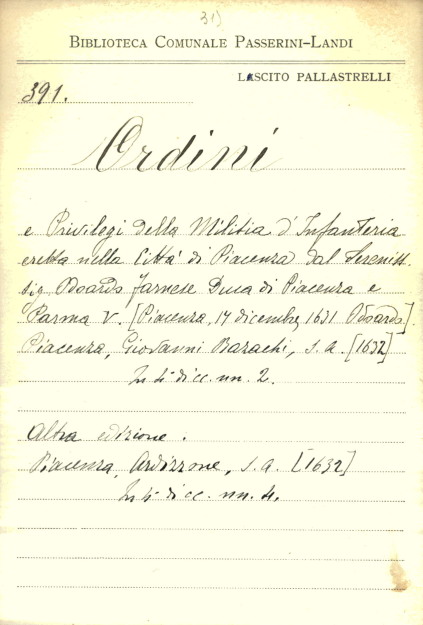 31)
BIBLIOTECA COMUNALE PASSERINI-LANDI
LASCITO PALLASTRELLI
391.
Ordini
e Privilegi della Militia d'Infanteria
eretta nella Città di Piacenza dal Sereniss.
Sig Odoardo Farnese Duca di Piacenza e
Parma V. [Piacenza, 17 dicembre 1631 Odoardo].
Piacenza, Giovanni Bazachi, s. a. [1632]
In 4° di cc. nn. 2.
Altra edizione.
Piacenza, Ardizzone, s. a. [1632]
In 4° di cc. nn. 4.